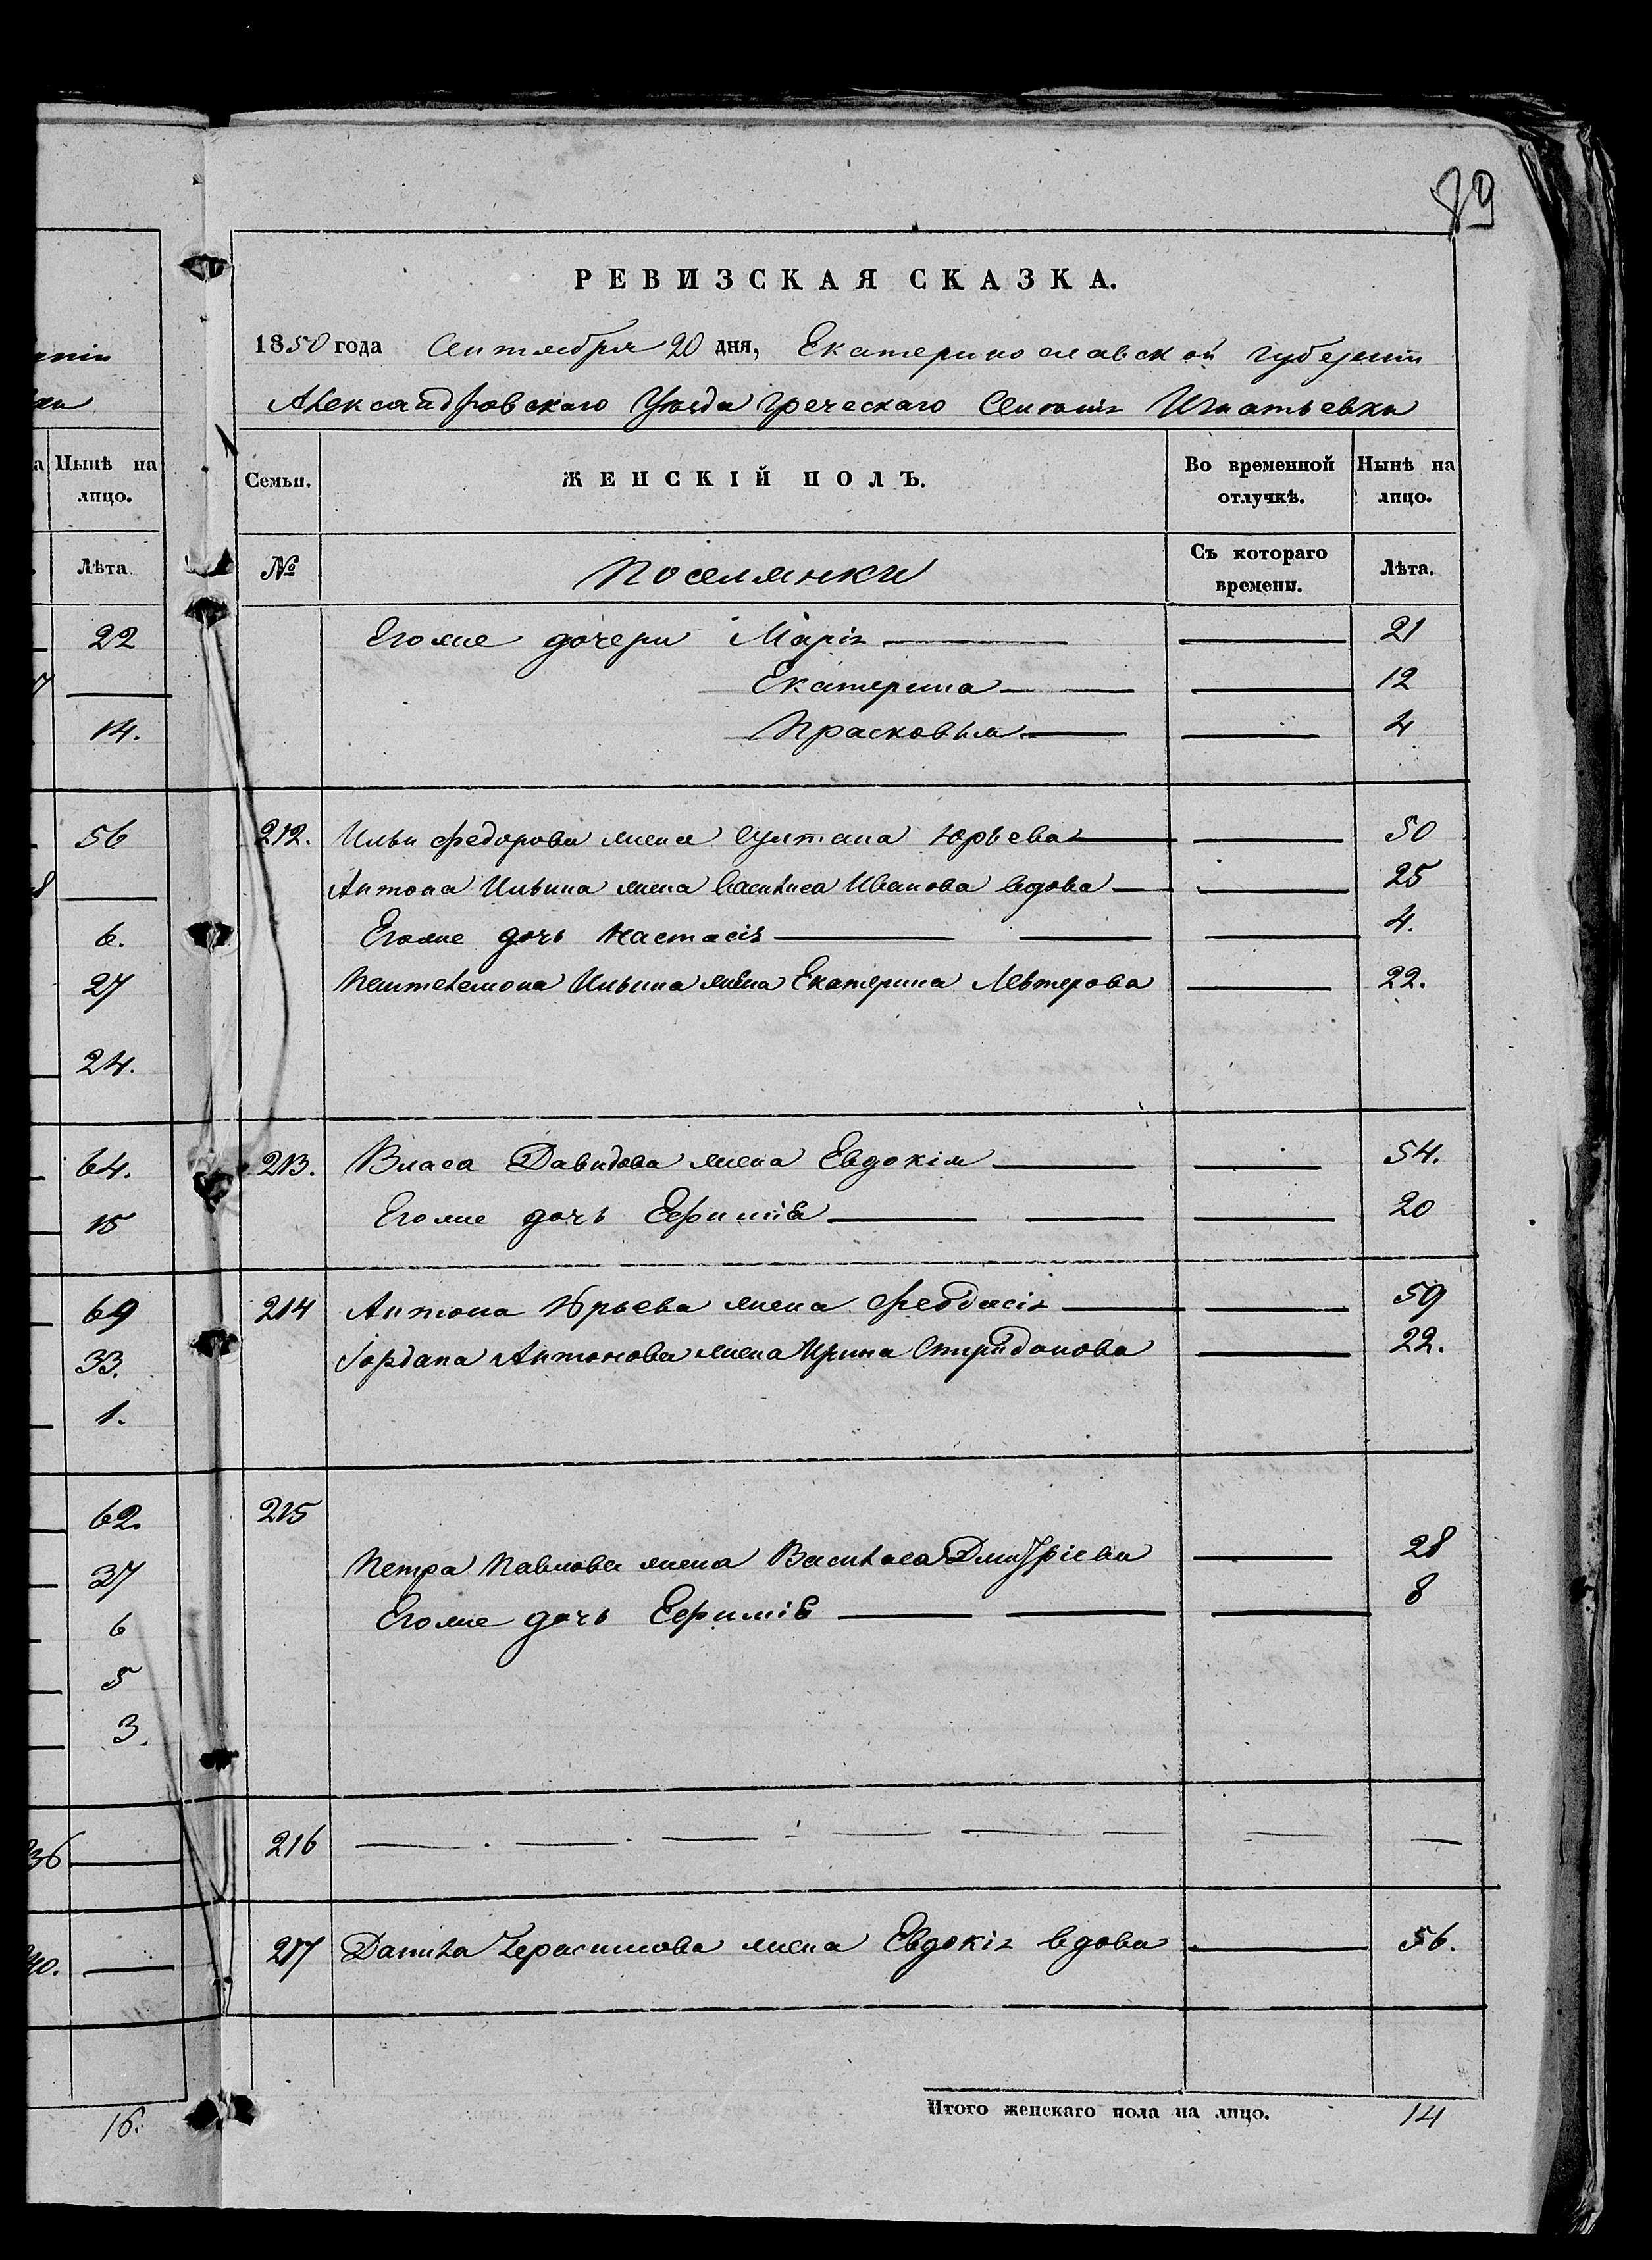 89
РЕВИЗСКАЯ СКАЗКА.
1850 года Сентября 20 дня, Екатеринославской губерніи
Александровскаго Уѣзда Греческаго Селенія Игнатьевки
Нынѣ на лицо.
Лѣта.
22
14.
56
6.
27
24.
64.
15
69
33.
1.
62.
37
6
5
3.
36
40.
16.
Семьи. ЖЕНСКІЙ ПОЛЪ. Во временной отлучкѣ. Нынѣ на лицо.
№ Поселянки Съ котораго времени. Лѣта.
Егоже дочери Марія 21
Екатерина 12
Прасковья 4
212. Ильи Федорова жена Султана Юрьева 50
Антона Ильина жена Василиса Иванова вдова 25
Егоже дочь Настасія 4.
Пантелемона Ильина жена Екатерина Левтерова 22.
213. Власа Давидова жена Евдокія 54.
Егоже дочь Ефимія 20
214 Антона Юрьева жена Феодосія 59
Іордана Антонова жена Ирина Спиридонова 22.
215
Петра Павлова жена Василиса Дмитріева 28
Егоже дочь Ефимія 8
216
217 Данила Герасимова жена Евдокія вдова 56.
Итого женскаго пола на лицо. 14